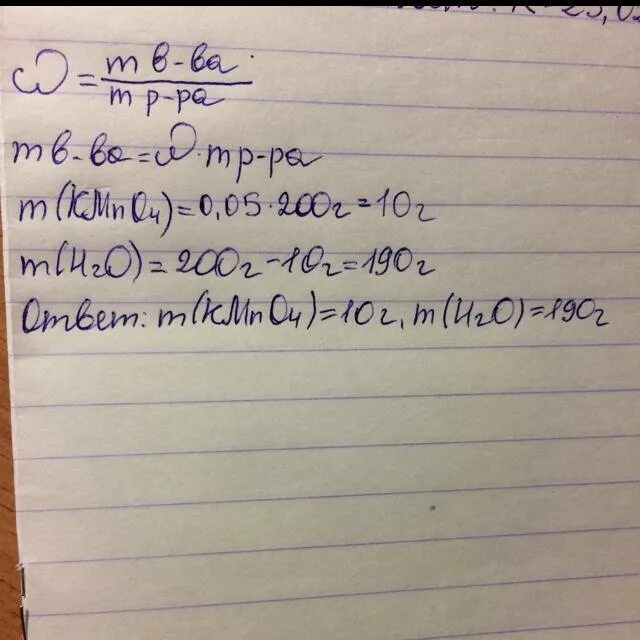 ω = m в-ва / m р-ра
m в-ва = ω · m р-ра
m(KMnO4) = 0,05 · 200г = 10г
m(H2O) = 200г - 10г = 190г
Ответ: m(KMnO4) = 10г, m(H2O) = 190г